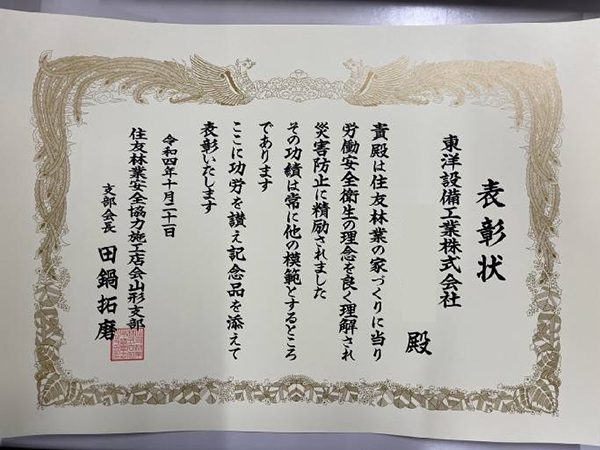 表彰状
東洋設備工業株式会社
殿
貴殿は住友林業の家づくりに当り
労働安全衛生の理念を良く理解され
災害防止に精励されました
その功績は常に他の模範とするところ
であります
ここに功労を讃え記念品を添えて
表彰いたします
令和四年十月二十一日
住友林業安全協力施工店会山形支部
支部会長 田鍋拓磨